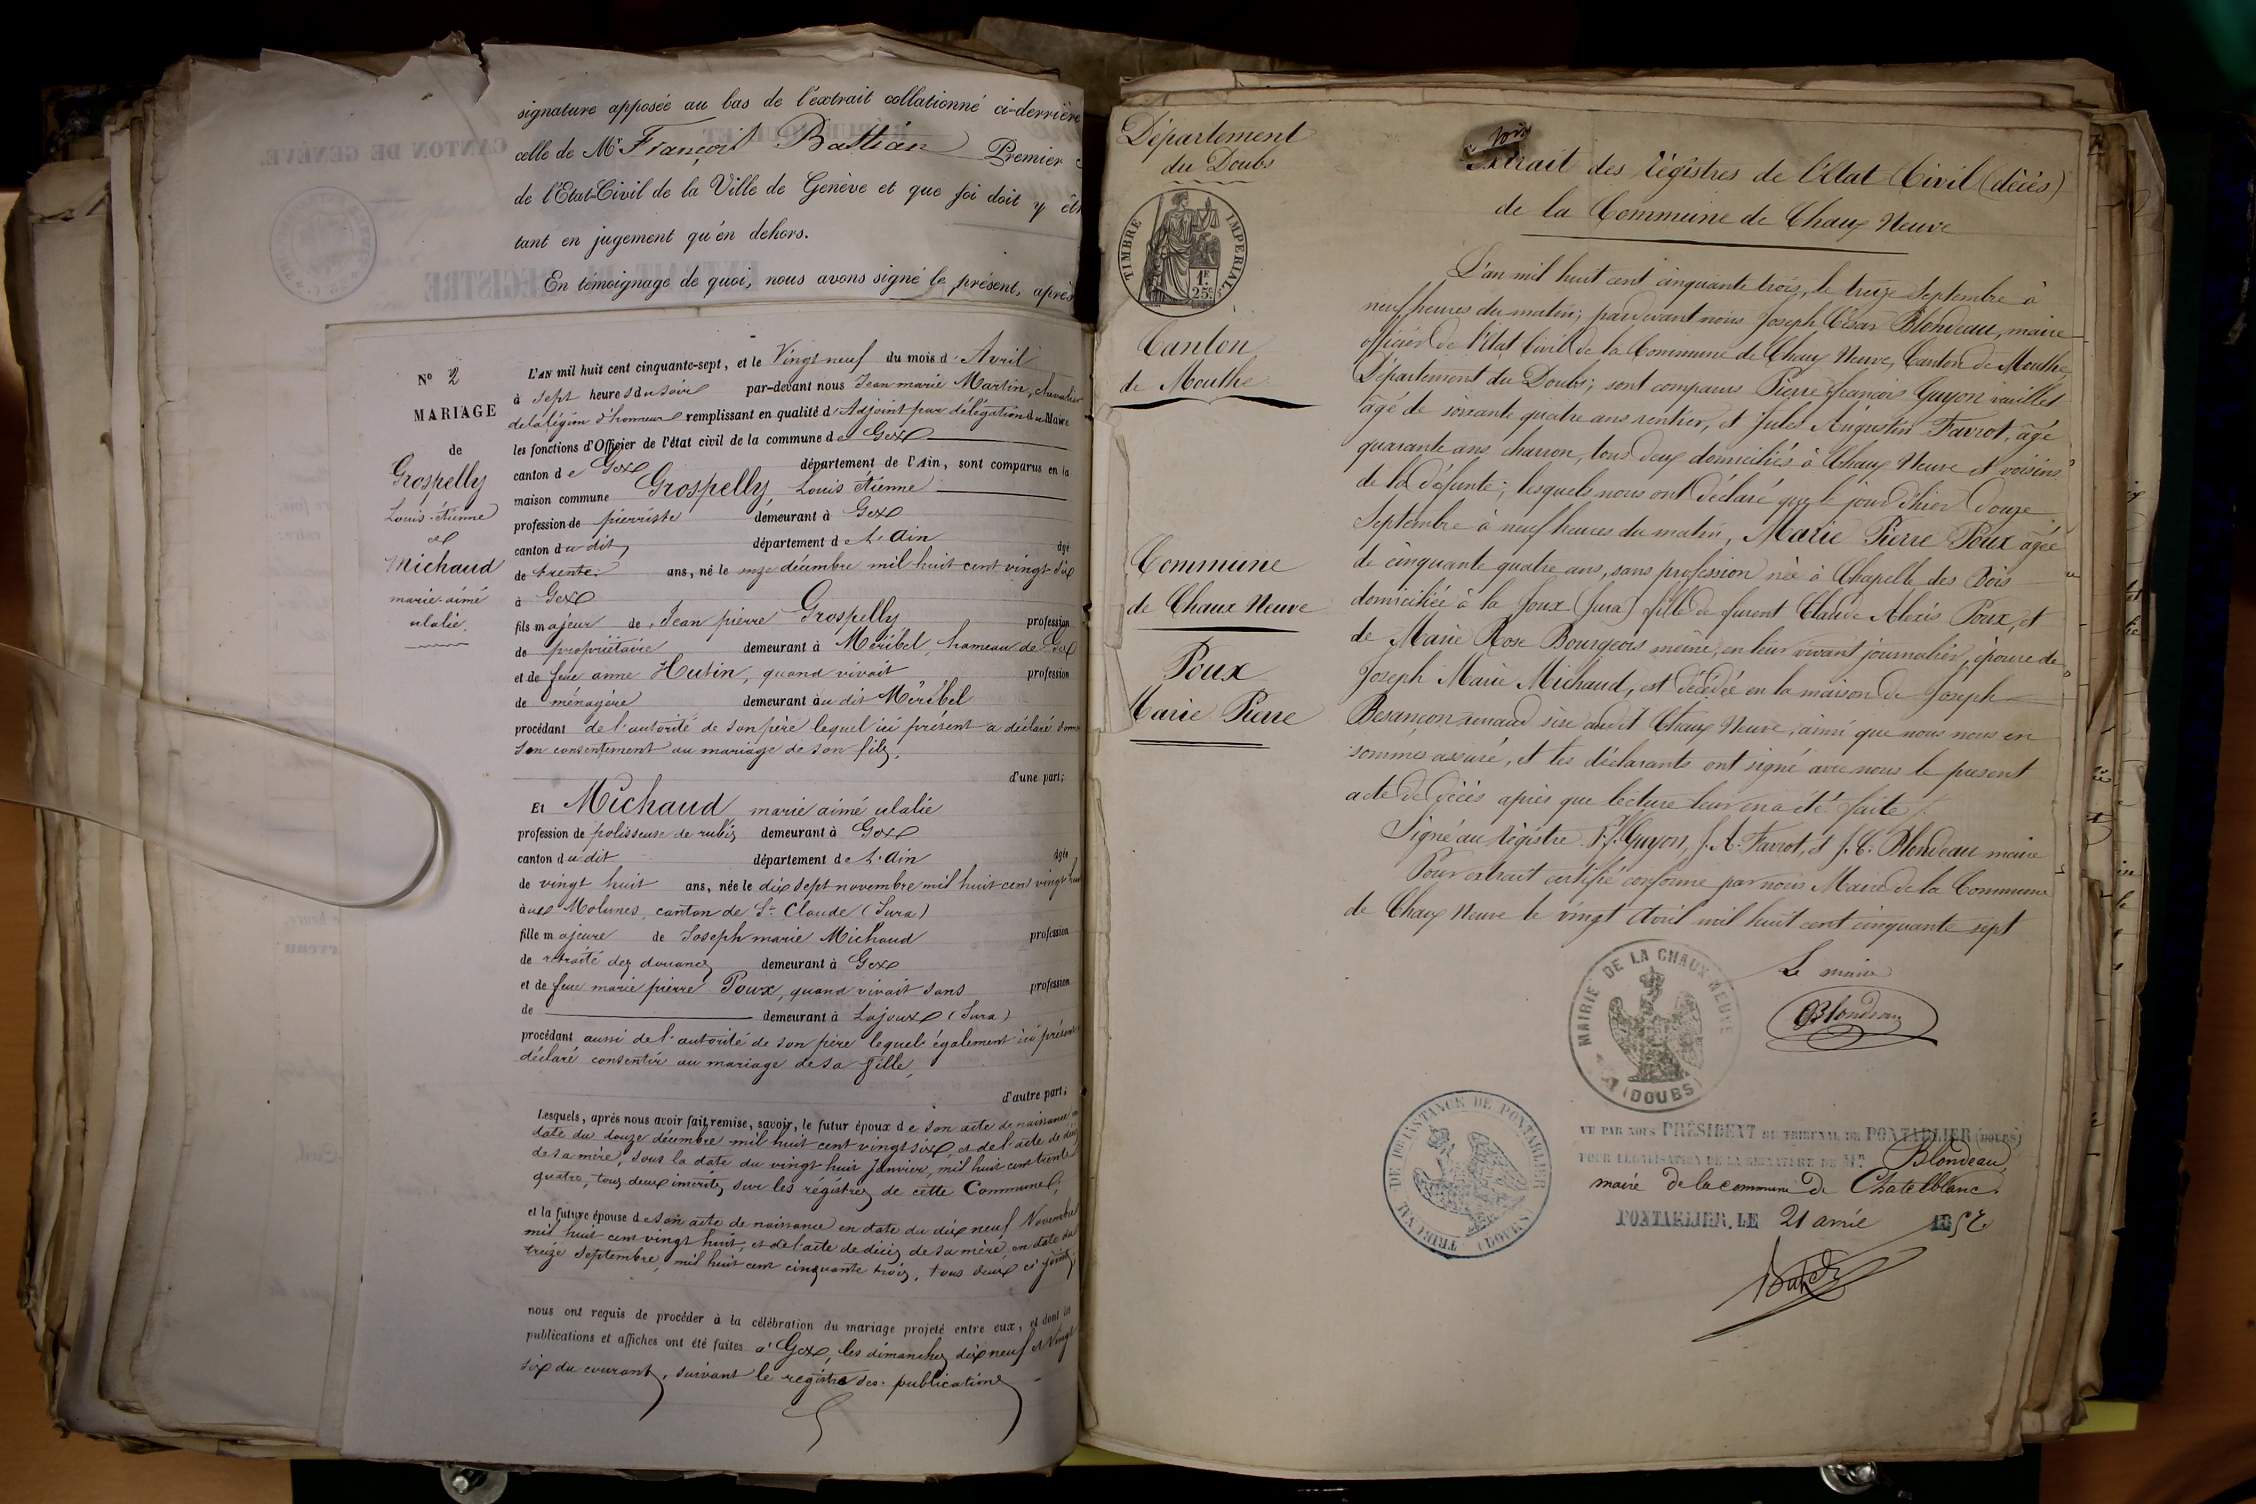 signature apposée au bas de l'extrait collationné ci-derrière
celle de Mr François Bastian Premier
de l'Etat-Civil de la Ville de Genève et que foi doit y êt
tant en jugement qu'en dehors.
En témoignage de quoi, nous avons signé le présent, après
N° 2
MARIAGE
de
Grospelly
Louis-étienne
et
Michaud
marie-aimé
ulalie.
L'AN mil huit cent cinquante-sept, et le Vingt neuf du mois d'Avril
à sept heures du soir par-devant nous Jean marie Martin, chevalier
de la légion d'honneur remplissant en qualité d'Adjoint par délégation du Maire
les fonctions d'Officier de l'état civil de la commune de Gex
canton de Gex département de l'Ain, sont comparus en la
maison commune Grospelly, Louis étienne
profession de pierriste demeurant à Gex
canton du dit, département de L'Ain âgé
de trente ans, né le onze décembre mil huit cent vingt six
à Gex
fils majeur de Jean pierre Grospelly profession
de propriétaire demeurant à Méribel, hameau de Gex
et de feue anne Hutin, quand vivait profession
de ménagère demeurant au dit Méribel
procédant de l'autorité de son père lequel ici présent a déclaré donner
son consentement au mariage de son fils,
d'une part;
Et Michaud marie aimé ulalie
profession de polisseuse de rubis demeurant à Gex
canton du dit département de L'Ain âgée
de vingt huit ans, née le dix sept novembre mil huit cent vingt huit
à ues Molunes, canton de St Claude (Jura)
fille majeure de Joseph marie Michaud profession
de retraité des douanes demeurant à Gex
et de feue marie pierre Poux, quand vivait sans profession
de demeurant à Lajoux (Jura)
procédant aussi de l'autorité de son père lequel également ici présent
déclaré consentir au mariage de sa fille,
d'autre part;
Lesquels, après nous avoir fait remise, savoir, le futur époux de son acte de naissance en
date du douze décembre mil huit cent vingt six, et de l'acte de décès
de sa mère, sous la date du vingt huit Janvier, mil huit cent trente
quatre, tous deux inscrits sur les régistres de cette Commune,
et la future épouse de son acte de naissance en date du dix neuf Novembre
mil huit cent vingt huit, et de l'acte de décès de sa mère, en date du
treize Septembre, mil huit cent cinquante trois, tous deux ci joints,
nous ont requis de procéder à la célébration du mariage projeté entre eux, et dont les
publications et affiches ont été faites à Gex, les dimanches dix neuf et Vingt
six du courant, suivant le registre des publications
Département
du Doubs
TIMBRE IMPERIAL
1F.
25c.
Canton
de Mouthe
Commune
de Chaux Neuve
Poux
Marie Pierre
Extrait des régistres de l'Etat Civil (décès)
de la Commune de Chaux Neuve
L'an mil huit cent cinquante trois, le treize Septembre à
neuf heures du matin; pardevant nous Joseph César Blondeau, maire
officier de l'Etat Civil de la Commune de Chaux Neuve, Canton de Mouthe
Département du Doubs; sont comparus Pierre François Guyon vaillet
âgé de soixante quatre ans rentier, et Jules Augustin Favrot, âgé
quarante ans charron, tous deux domiciliés à Chaux Neuve et voisins
de la défunte; lesquels nous ont déclaré que le jour d'hier douze
Septembre à neuf heures du matin, Marie Pierre Poux âgée
de cinquante quatre ans, sans profession née à Chapelle des Bois
domiciliée à la Joux (Jura) fille de furent Claude Alexis Poux, et
de Marie Rose Bourgeois moine, en leur vivant journalier, épouse de
Joseph Marie Michaud, est décédée en la maison de Joseph
Besançon renaud sise audit Chaux Neuve, ainsi que nous nous en
sommes assuré, et les déclarants ont signé avec nous le present
acte de décès après que lecture leur en a été faite.
Signé au régistre P. f. Guyon, J. A. Favrot, et J. C. Blondeau maire
Pour extrait certifié conforme par nous Maire de la Commune
de Chaux Neuve le vingt Avril mil huit cent cinquante sept
Le maire
Blondeau
MAIRIE DE LA CHAUX-NEUVE
(DOUBS)
TRIBUNAL DE 1ERE INSTANCE DE PONTARLIER
(DOUBS)
VU PAR NOUS PRÉSIDENT DU TRIBUNAL DE PONTARLIER (DOUBS)
POUR LEGALISATION DE LA SIGNATURE DE Mr Blondeau,
maire de la commune de Chatelblanc.
PONTARLIER, LE 21 avril 1857